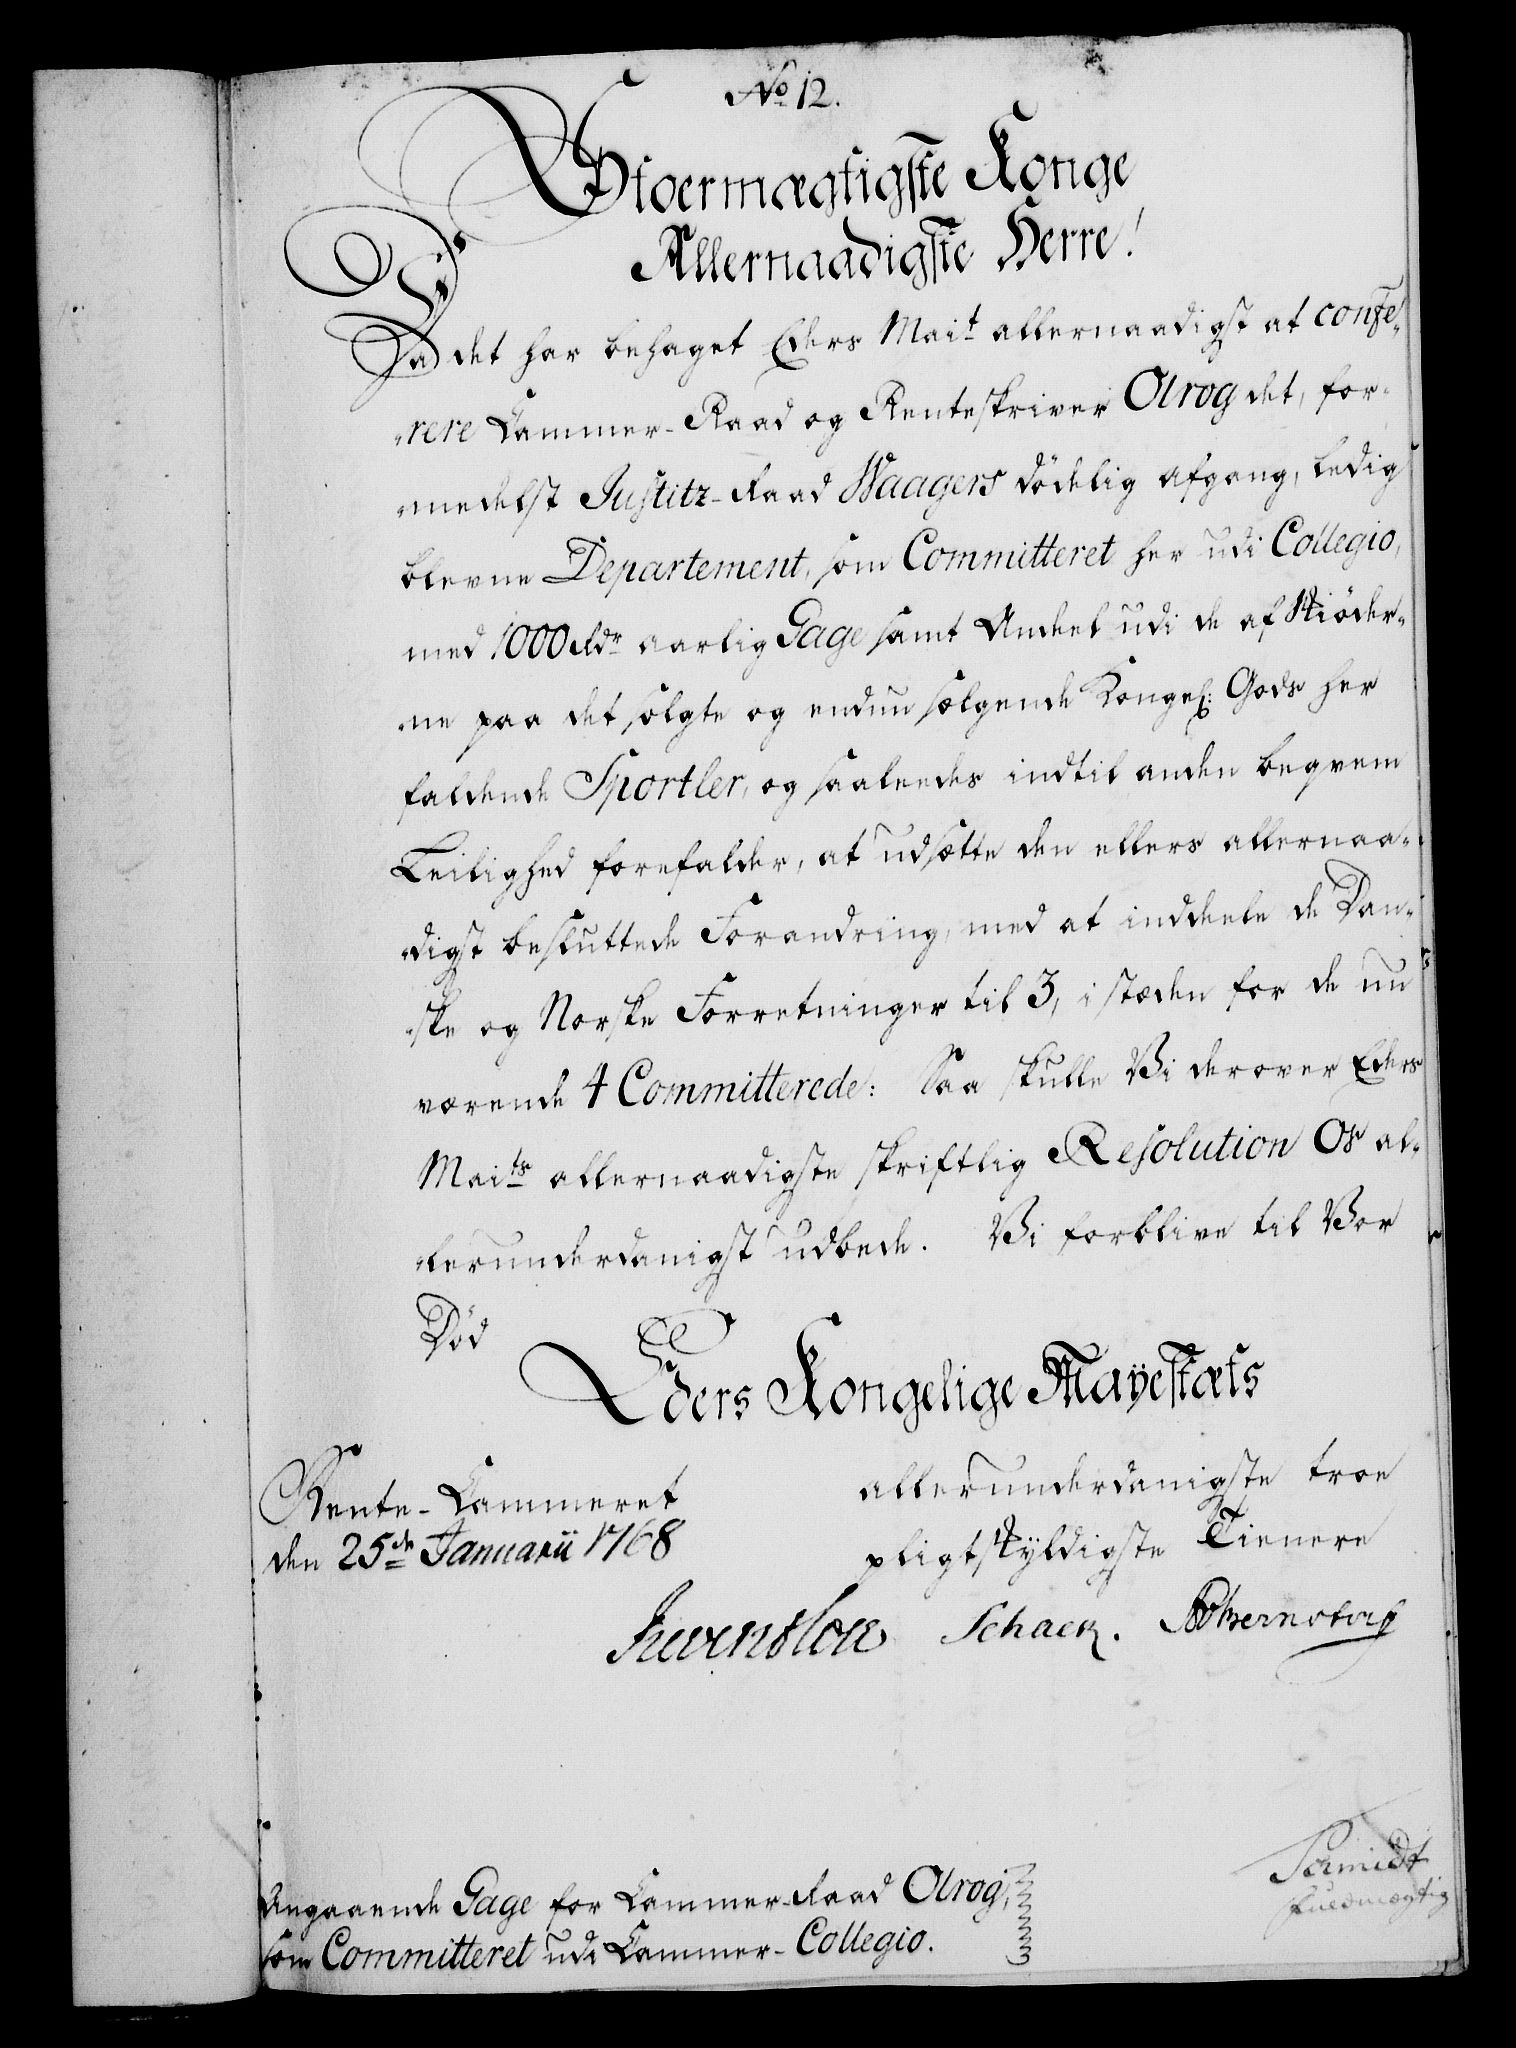 No 12.
Stoermægtigste Konge
Allernaadigste Herre!
Da det har behaget Eders Mait allernaadigst at confe-
rere Cammer-Raad og Renteskriver Olrog det, for-
medelst Justitz-Raad Waagers dödelig afgang, ledig
blevne Departement, som Committeret her udi Collegio,
med 1000 Rdr aarlig Gage samt Andeel udi de af Skiöder-
ne paa det solgte og endnu sælgende Kongel: Gods her
faldende Sportler, og saaleedes indtil anden beqvem
Leilighed forefalder, at udsætte den ellers allernaa-
digst besluttede Forandring, med at inddeele de Dan-
ske og Norske Forretninger til 3, i stæden for de nu
værende 4 Committerede: Saa skulle Vi derover Eders
Maits allernaadigste skriftlig Resolution Os al-
lerunderdanigst udbede. Vi forblive til Vor
Död
Eders Kongelige Mayestæts
Rente-Cammeret
den 25de Januarii 1768
allerunderdanigste troe
pligtskyldigste Tienere
Schack. Bernstorff
Schmidt
fuldmægtig
Angaaende Gage for Cammer-Raad Olrog,
som Committeret udi Cammer-Collegio.